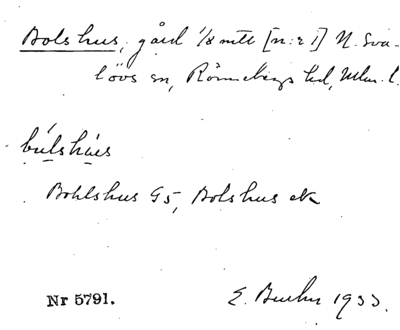 Bolshus, gård 1/8 mtl [n:r 1] N. Sva-
lövs sn, Rönnebergs hd, Mlm. l.
búlshús
Bohlshus G5, Bolshus ek
Nr 5791.
E. 1933.